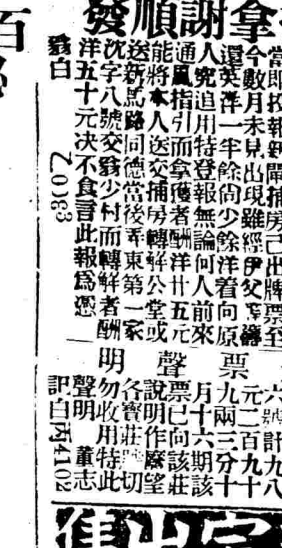 拿謝順發
當即投報新閘捕房已出牌票至
今數月未見出現雖經伊父
還英洋一半餘尙少餘洋着向原
人究追用特登報無論何人前來
通風指引而拿獲者酬洋廿五元
能將本人送交捕房轉解公堂或
送新馬路同德當後弄東第一家
沈字八號交翁少村而轉解者酬
洋五十元决不食言此報爲憑
翁白
乙〇一83
票聲明
六號計九八
元二百九十
九兩三分十
月十六期該
票已向該莊
說明作廢望
各寶莊號切
勿收用特此
聲明 董志
記白 丙4102